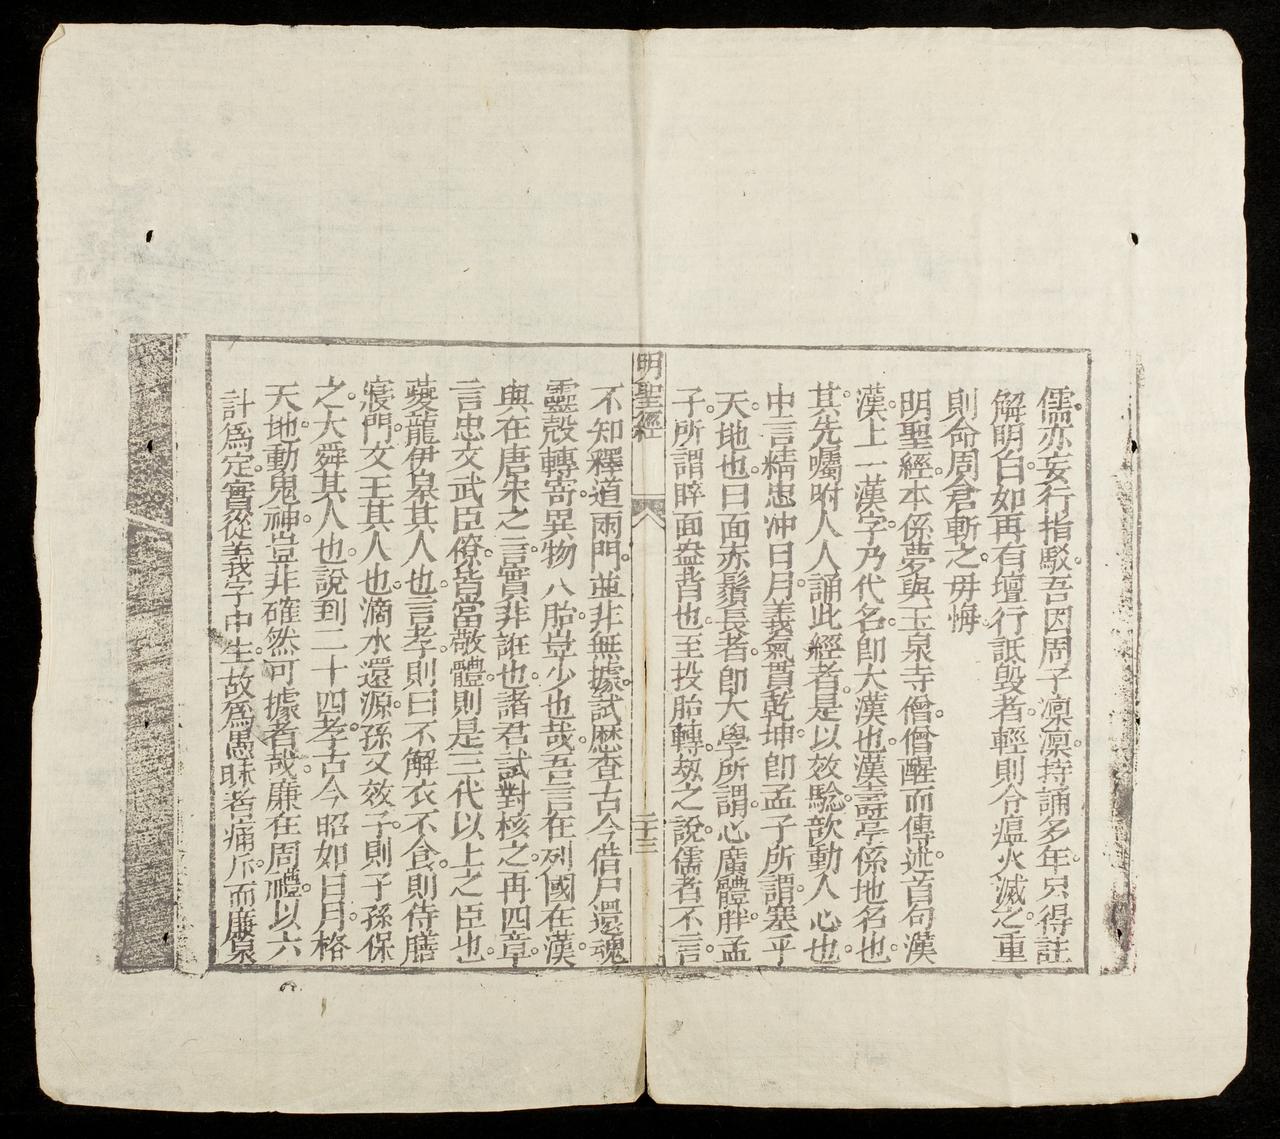 儒亦妄行指駁。吾因周子凜凜。持誦多年。只得註
解明白。如再有壇行詆毀者。輕則令瘟火滅之。重
則命周倉斬之。毋悔。
明聖經。本係夢與玉泉寺僧。僧醒而傳述。首句漢
漢上一漢字。乃代名。即大漢也。漢壽亭係地名也。
其先囑咐人人誦此經者。是以效驗。歆動人心也。
中言精忠冲日月。義氣貫乾坤。即孟子所謂。塞乎
天地也。曰面赤鬚長者。即大學所謂。心廣體胖。孟
子所謂睟面盎背也。至投胎轉刼之說。儒者不言。
明聖經
二十三
不知釋道兩門。並非無據。試歷查古今借尸還魂。
靈殼轉寄異物。八胎豈少也哉。吾言在列國。在漢。
與在唐宋之言。實非誑也。諸君試對核之。再四章
言忠。文武臣僚。皆當敬體。則是三代以上之臣也。
夔龍伊臯其人也。言孝。則曰不解衣。不食。則侍膳
寢門。文王其人也。滴水還源。孫又效子。則子孫保
之。大舜其人也。說到二十四孝。古今昭如日月。格
天地。動鬼神。豈非確然可據者哉。廉在周禮。以六
計爲定。實從義字中生。故爲愚昧者痛斥。而廉泉